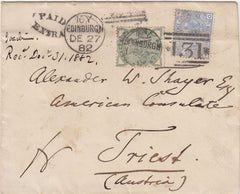 PAID
EXTRA
EDINBURGH
DE 27
82
EDINBURGH
131
Recd Dec 31. 1882.
Alexander W. Thayer Esq
American Consulate
Triest
(Austria)